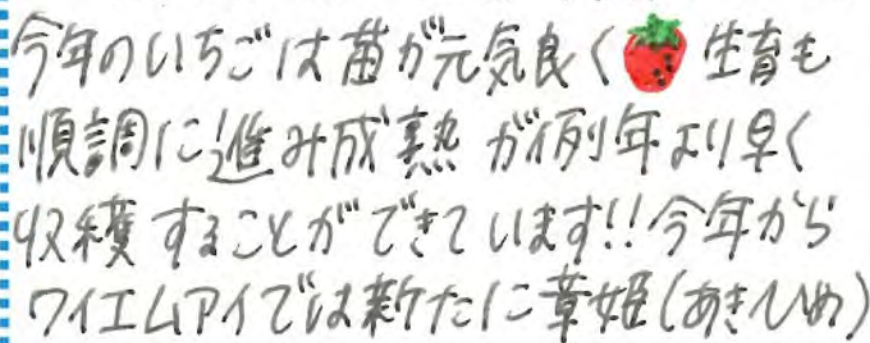 今年のいちごは苗が元気良く 生育も
順調に進み成熟が例年より早く
収穫することができています!!今年から
ワイエムアイでは新たに章姫(あきひめ)